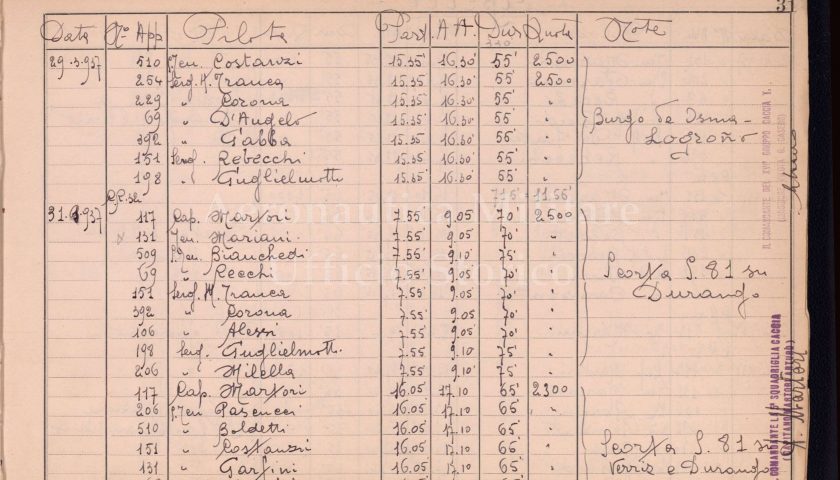 31
Data No App Pilota Part. A A. Dur Quota Note
29.3.937 510 S.Ten. Costanzi 15.35' 16.30' 55' 2500
254 Serg. M. Franca 15.35 16.30' 55' 2500
229 " Corona 15.35 16.30' 55' "
69 " D'Angelo 15.35 16.30' 55' " Burgo de Osma -
392 " Gabba 15.35 16.30' 55' " Logroño
151 Serg. Rebecchi 15.35 16.30' 55' "
198 " Guglielmotti 15.35 16.30' 55' "
= 11.56'
31.3.937 117 Cap. Martori 7.55' 9.05 70' 2500
131 Ten. Mariani 7.55' 9.05 70' "
509 S.Ten. Bianchedi 7.55' 9.10 75' "
69 " Cecchi 7.55' 9.05' 70' " Scorta S. 81 su
151 Serg. M. Franca 7.55' 9.05 70' " Durango
392 " Corona 7.55' 9.05 70' "
106 " Alessi 7.55' 9.05' 70' "
198 Serg. Guglielmotti 7.55' 9.10' 75' "
206 " Milella 7.55' 9.10' 75' "
117 Cap. Martori 16.05 17.10 65' 2300
206 S.Ten. Pascucci 16.05 17.10 65' "
510 " Boldetri 16.05 17.10 65' "
151 " Costanzi 16.05 17.10 65' " Scorta S. 81 su
131 " Garfini 16.05 17.10 65' " Verriz e Durango
Aeronautica Militare
Ufficio Storico
IL COMANDANTE DEL XVI° GRUPPO CACCIA T.
IL COMANDANTE LA 5ª SQUADRIGLIA CACCIA
(CAPITANO MARTORI ARTURO)
Martori